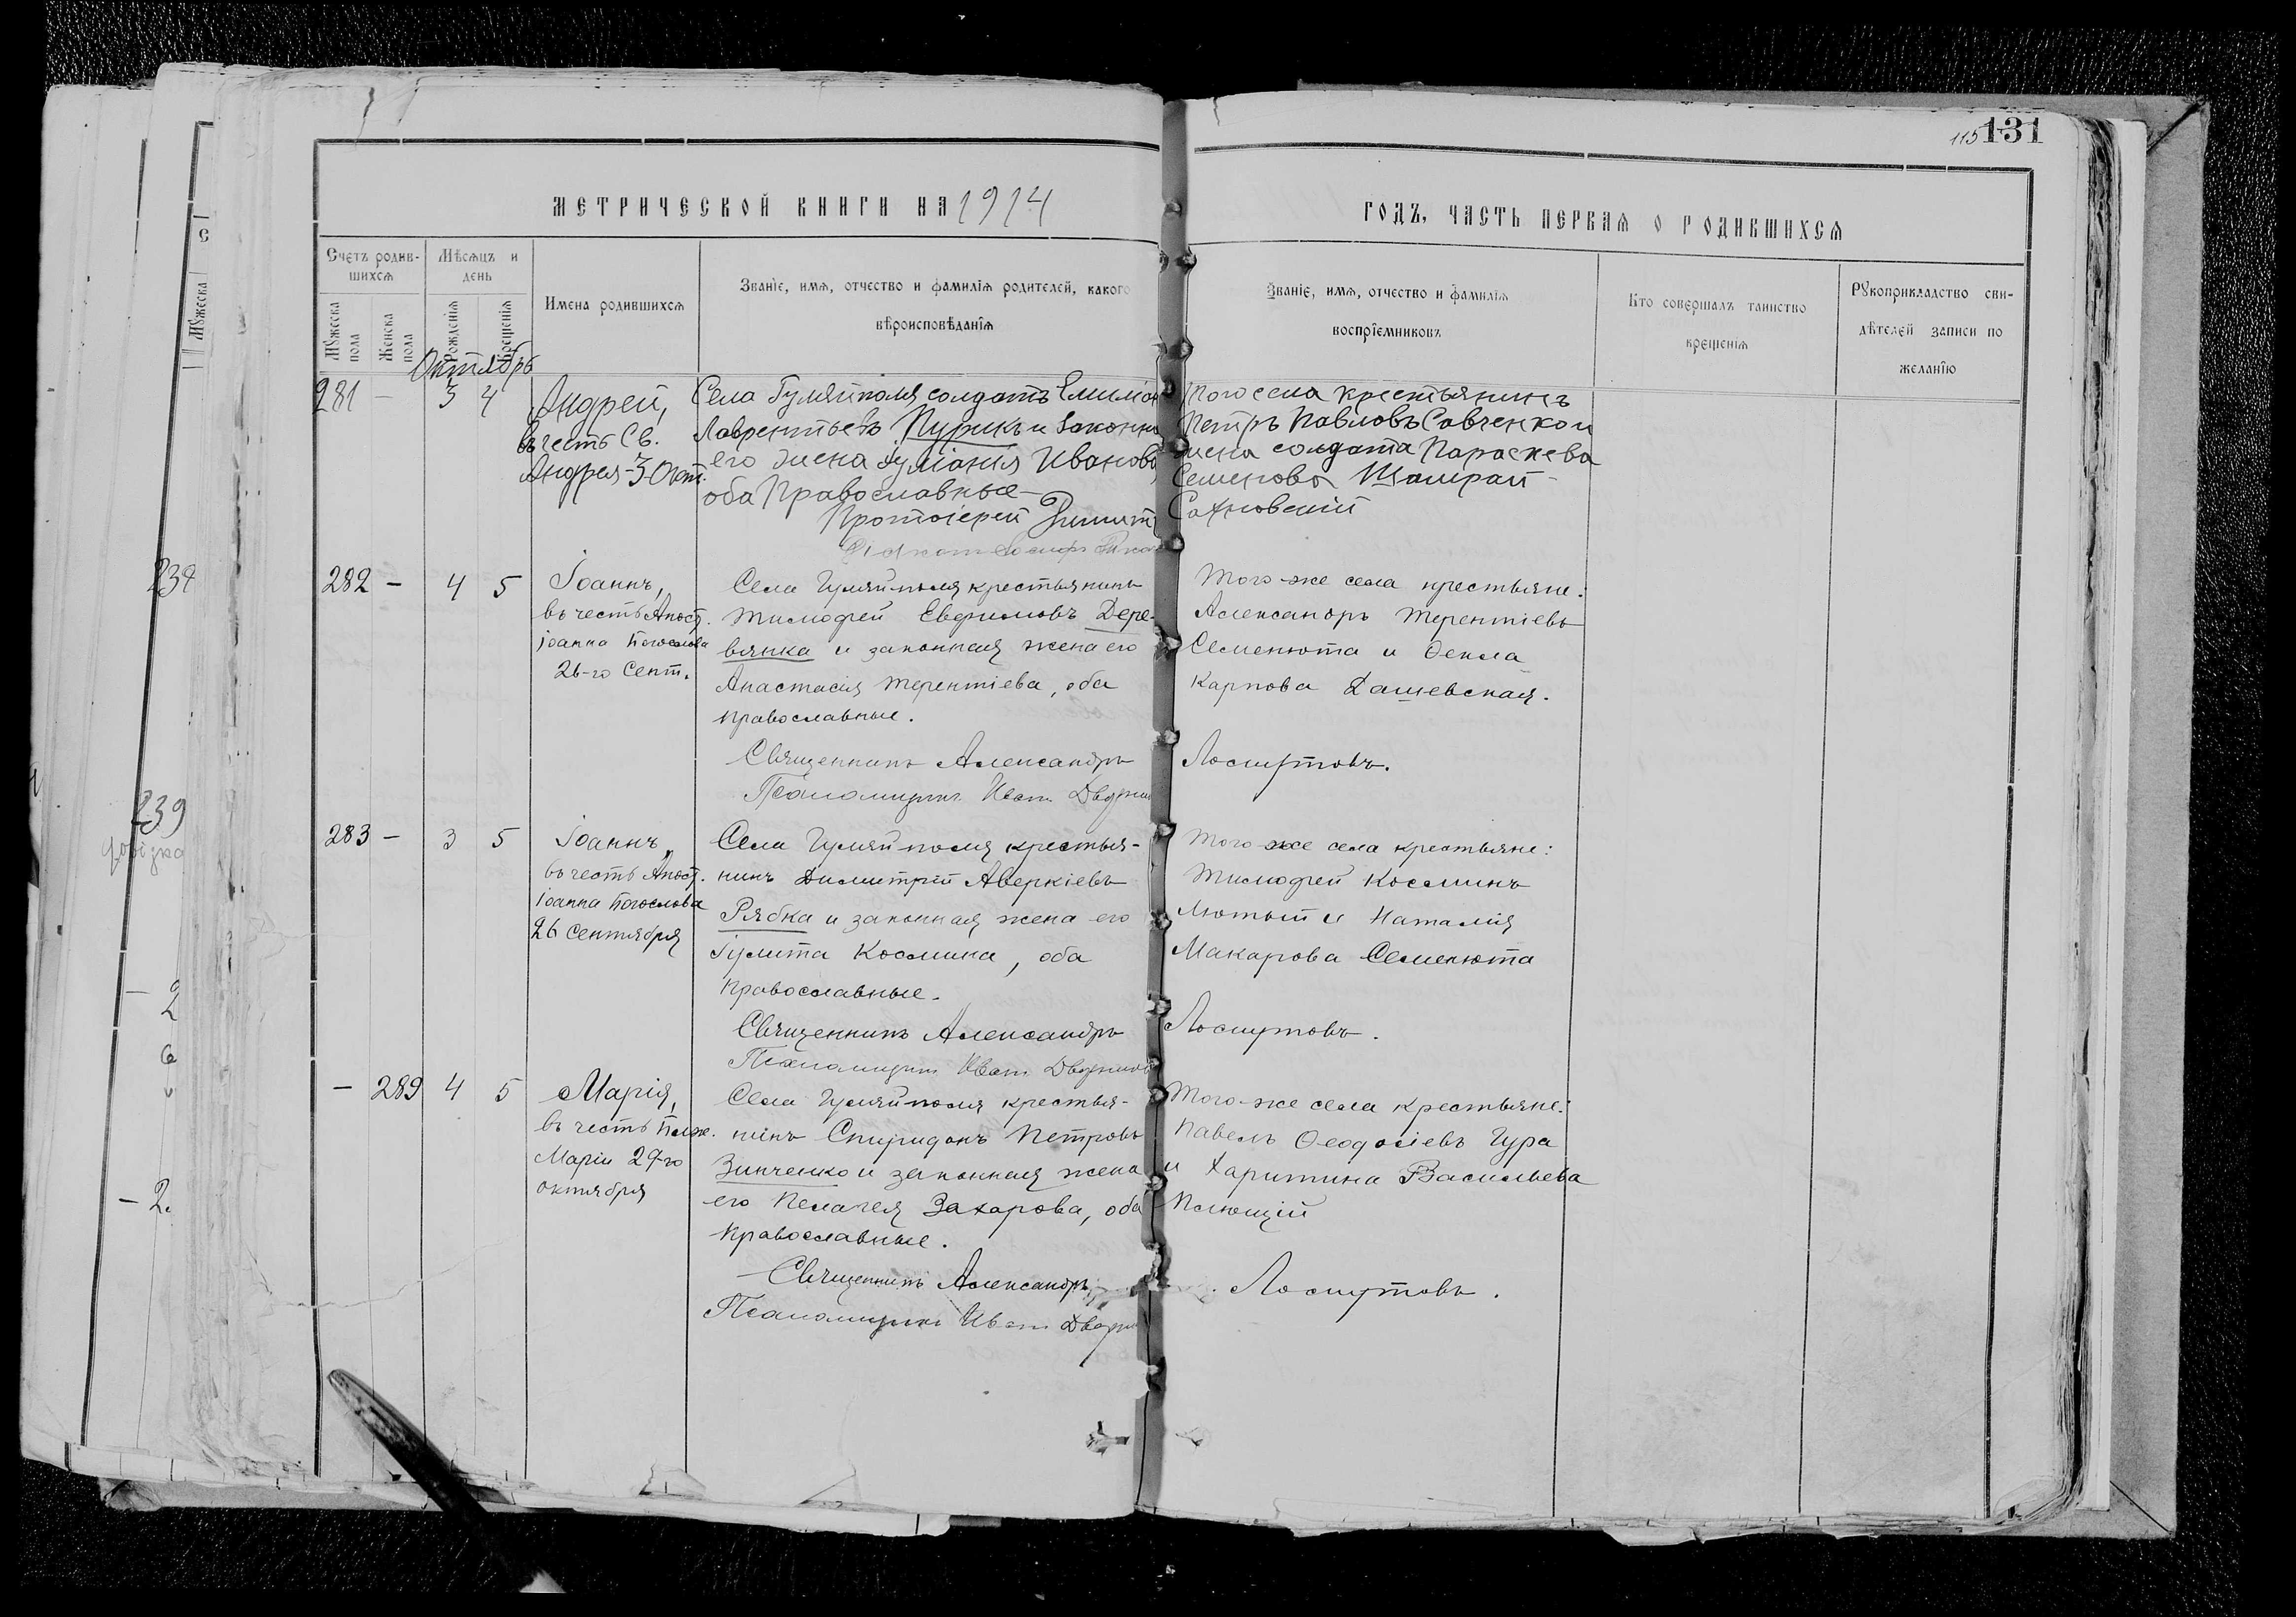 115 131
МЕТРИЧЕСКОЙ КНИГИ НА 1914
ГОДЪ, ЧАСТЬ ПЕРВАЯ О РОДИВШИХСЯ
Счетъ родив-
шихся
Мужеска пола
Женска пола
Мѣсяцъ и
день
Рожденія
Крещенія
Имена родившихся
Званіе, имя, отчество и фамилія родителей, какого
вѣроисповѣданія
Званіе, имя, отчество и фамилія
воспріемниковъ
Кто совершалъ таинство
крещенія
Рукоприкладство сви-
дѣтелей записи по
желанію
Октябрь
281 - 3 4
Андрей,
въ честь Св.
Андрея 3 Окт.
Села Гуляйполя солдатъ
Лаврентьевъ Пурикъ и законная
его жена Іуліанія Иванова
оба Православные
Протоіерей Димит
Того села крестьянинъ
Петръ Павловъ Савченко и
жена солдата Параскева
Семенова Шамрай
Сахновскій
282 - 4 5
Іоаннъ,
въ честь Апост.
Іоанна Богослова
26-го Сент.
Села Гуляйполя крестьянинъ
Тимофей Евфимовъ Дере-
вянка и законная жена его
Анастасія Терентіева, оба
православные.
Священникъ Александръ
Псаломщикъ Иванъ
Того-же села крестьяне:
Александръ Терентіевъ
Семенюта и Ѳекла
Карпова Дашевская.
Лоскутовъ.
283 - 3 5
Іоаннъ,
въ честь Апост.
Іоанна Богослова
26 Сентября
Села Гуляйполя крестья-
нинъ Димитрій Аверкіевъ
Рябка и законная жена его
Іулита Космина, оба
православные.
Священникъ Александръ
Псаломщикъ Иванъ
Того-же села крестьяне:
Тимофей Косминъ
Лютый и Наталія
Макарова Семенюта
Лоскутовъ.
- 289 4 5
Марія,
въ честь
Маріи 29-го
октября
Села Гуляйполя крестья-
нинъ Спиридонъ Петровъ
Зинченко и законная жена
его Пелагея Захарова, оба
православные.
Священникъ Александръ
Псаломщикъ Иванъ
Того-же села крестьяне:
Павелъ Ѳеодосіевъ Гура
и Харитина Васильева
Лоскутовъ.
239
2
- 2.